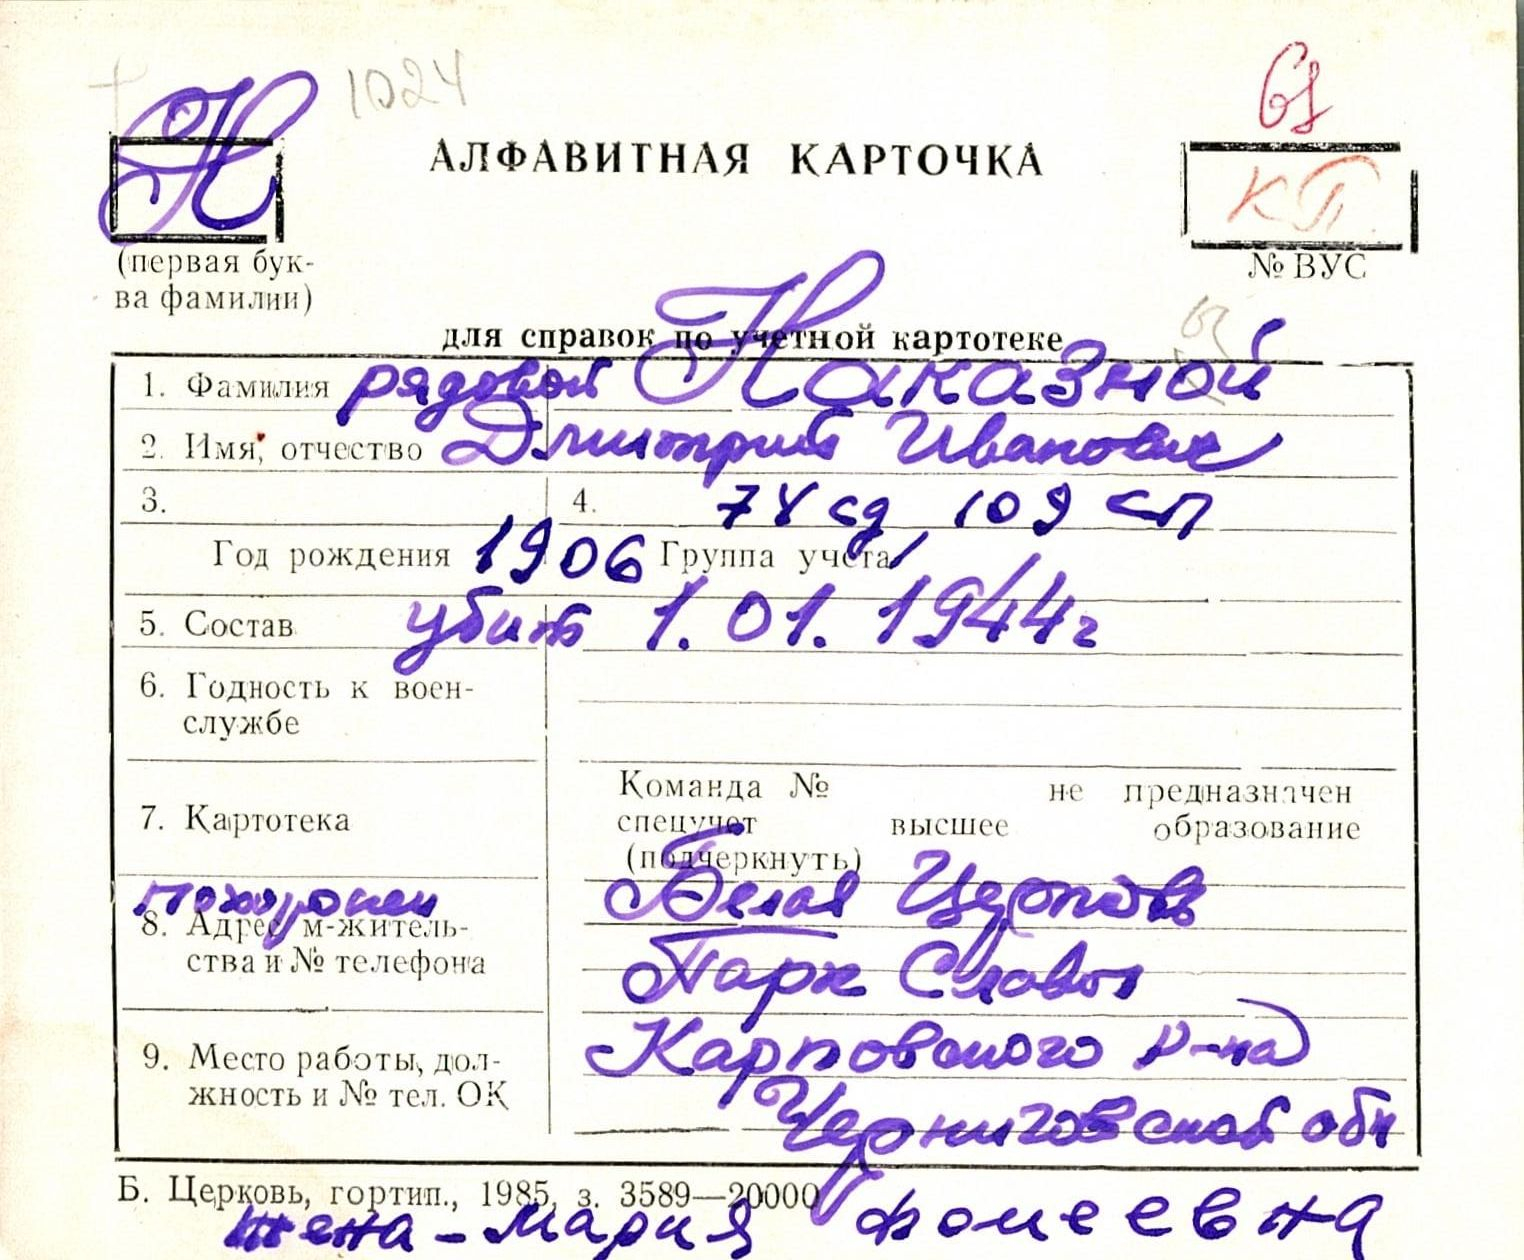 Н 1024
61
АЛФАВИТНАЯ КАРТОЧКА
КП.
(первая бук-
ва фамилии)
№ ВУС
для справок по учетной картотеке
1. Фамилия рядовой Наказной
2. Имя, отчество Дмитрий Иванович
3. 4. 74 сд, 109 сп
Год рождения 1906 Группа учета
5. Состав убит 1.01.1944г
6. Годность к воен-
службе
Команда № не предназначен
7. Картотека спецучет высшее образование
(подчеркнуть)
похоронен Белая Церковь
8. Адрес м-житель-
ства и № телефона Парк Славы
9. Место работы, дол-
жность и № тел. ОК
Карповского р-на
Черниговской обл
Б. Церковь, гортип., 1985, з. 3589—20000
жена - Мария Фомеевна